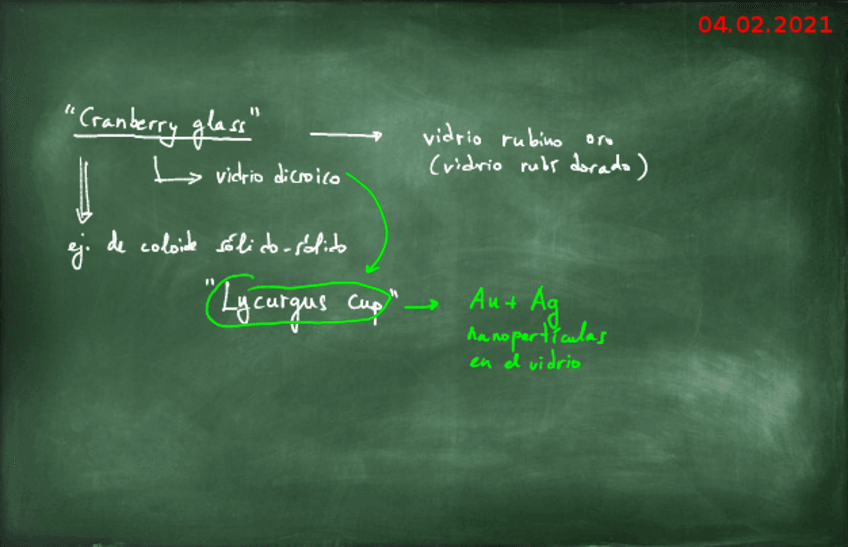 04.02.2021
"Cranberry glass" → vidrio rubino oro
(vidrio rubí dorado)
↳ vidrio dicroico
ej. de coloide sólido-sólido
"Lycurgus cup" → Au + Ag
nanopartículas
en el vidrio